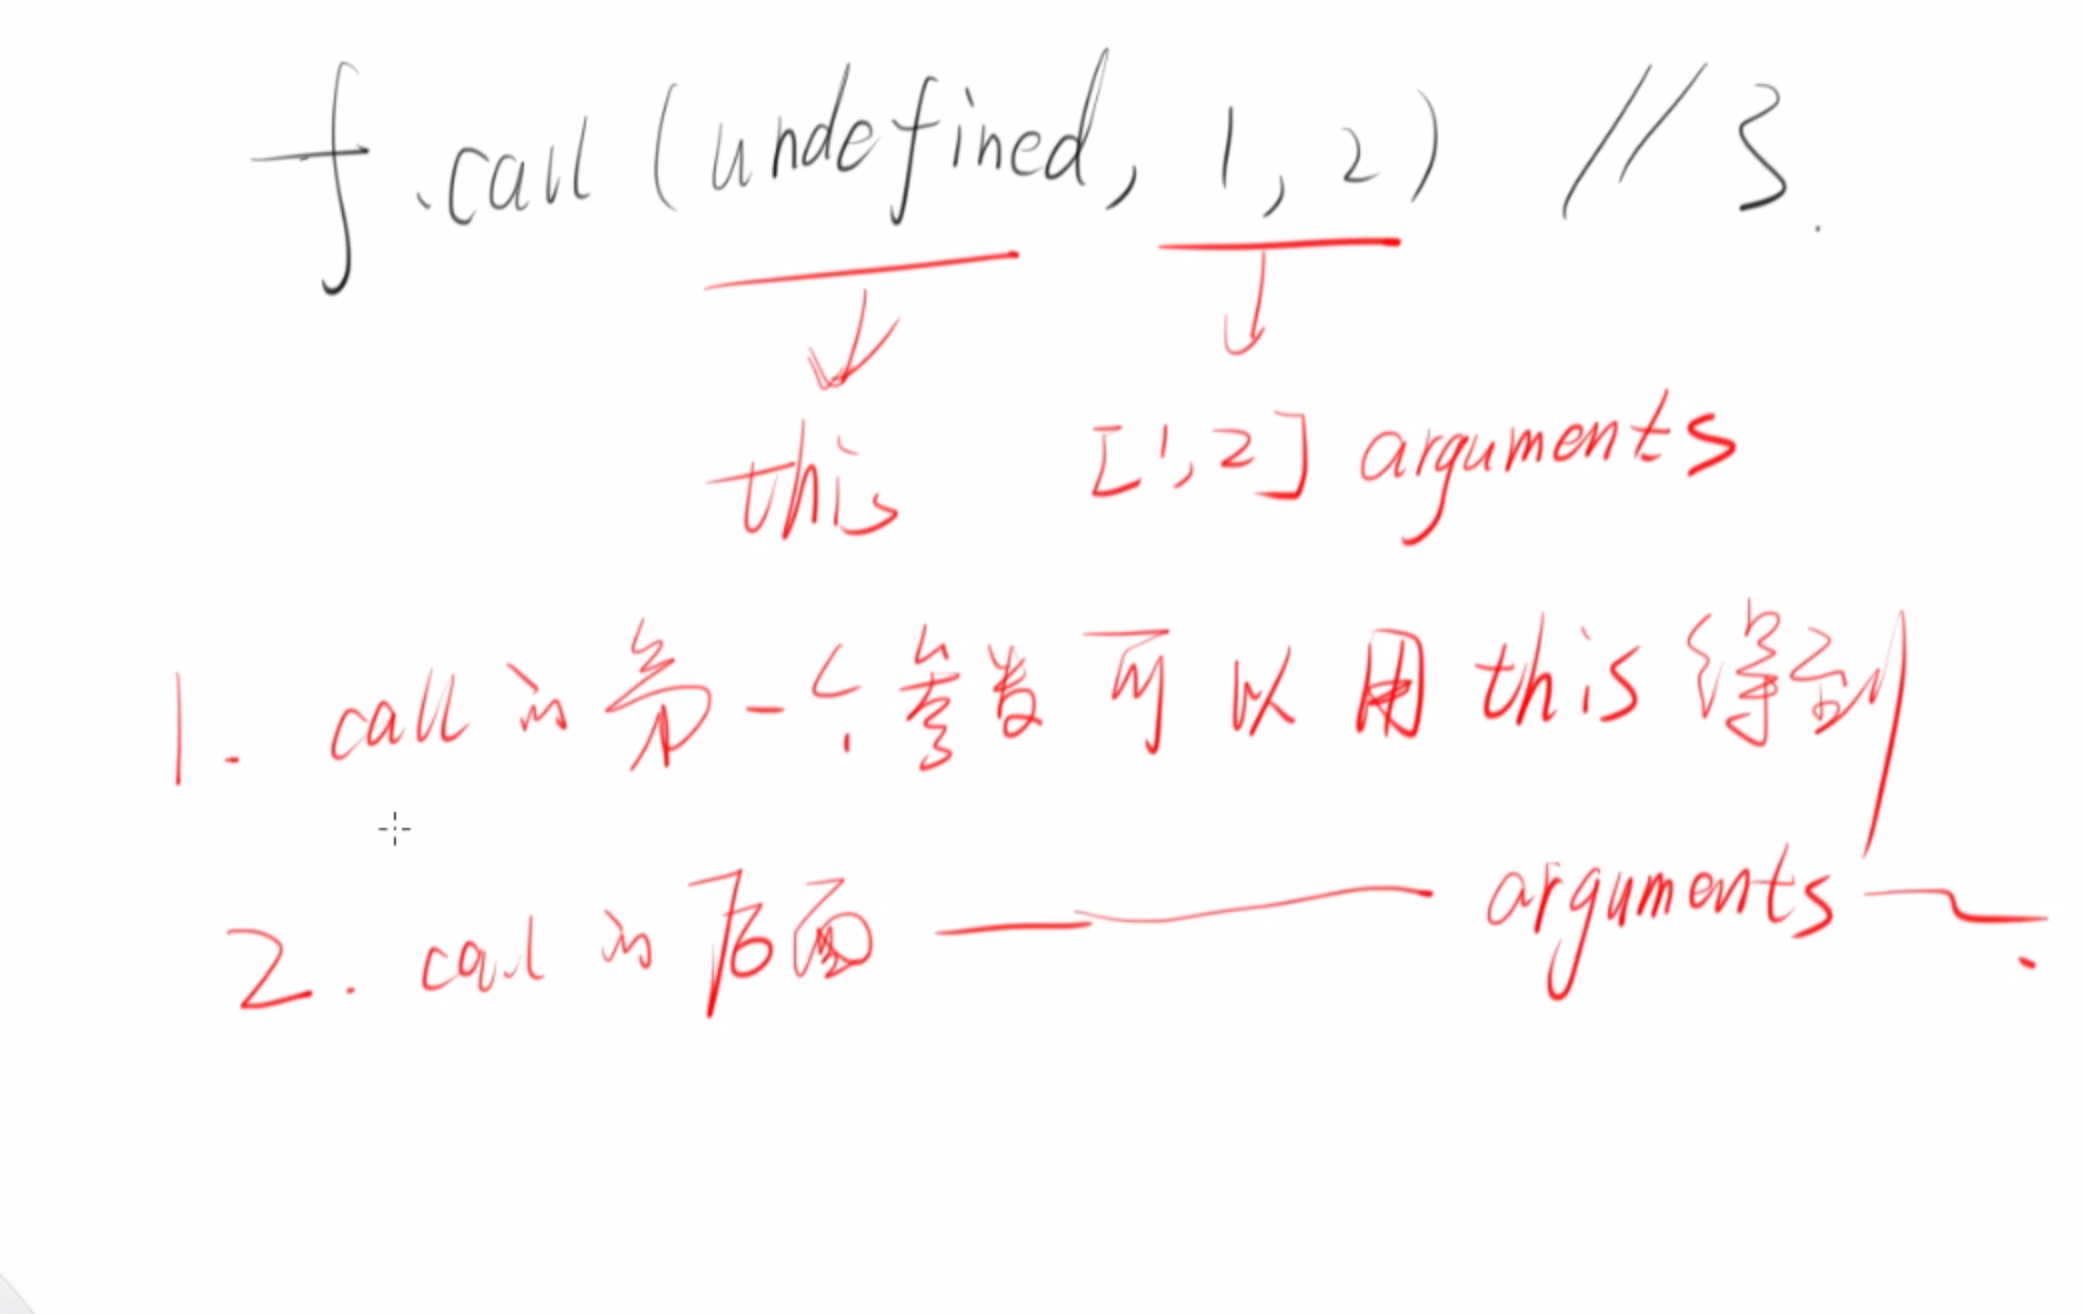 f.call(undefined, 1, 2) // 3.
this [1,2] arguments
1. call的第一个参数可以用this得到
2. call的后面 —— arguments ——.